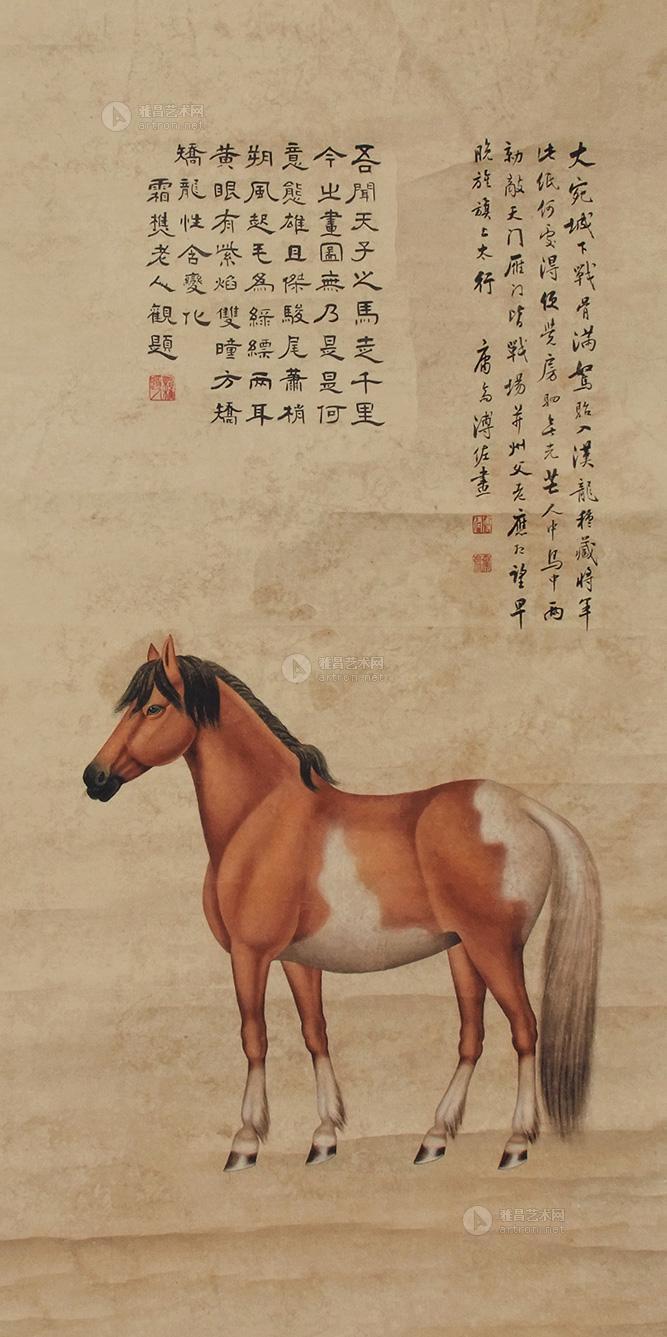 大宛城下戰骨滿駑駘入漢龍種藏將軍
此紙何處得便覺房駟無光芒人中馬中兩
勍敵天門雁門皆戰場并州父老應相望早
晚旌旗上太行 庸齋溥佐畫
吾聞天子之馬走千里
今之畫圖無乃是是何
意態雄且傑駿尾蕭梢
朔風起毛為綠縹兩耳
黃眼有紫焰雙瞳方矯
矯龍性含變化
霜樵老人觀題
雅昌艺术网
artron.net
雅昌艺术网
artron.net
雅昌艺术网
artron.net